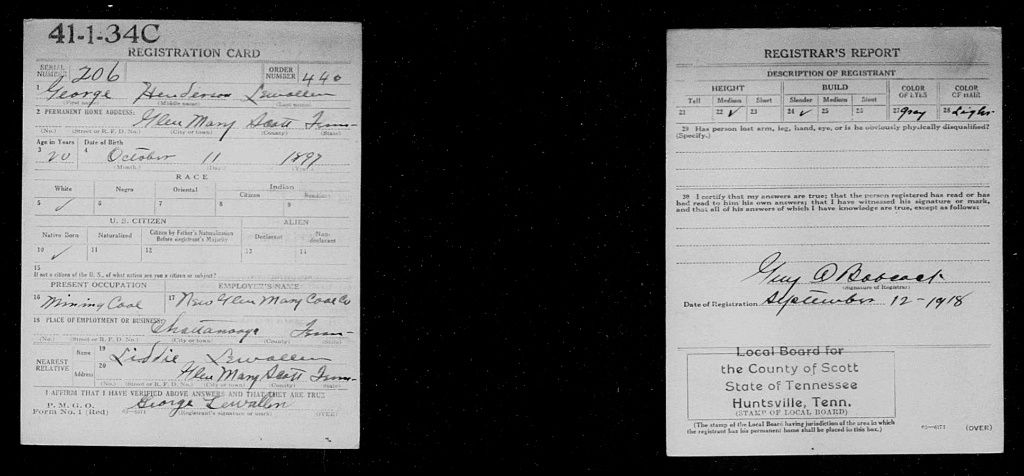 41-1-34C
REGISTRATION CARD
SERIAL NUMBER 206 ORDER NUMBER 440
1 George Henderson Lewallen
(First name) (Middle name) (Last name)
2 PERMANENT HOME ADDRESS: Glen Mary Scott Tenn-
(No.) (Street or R. F. D. No.) (City or town) (County) (State)
Age in Years Date of Birth
3 20 4 October 11 1897
(Month) (Day) (Year)
RACE
White Negro Oriental Indian
Citizen Noncitizen
5 ✓ 6 7 8 9
U. S. CITIZEN ALIEN
Native Born Naturalized Citizen by Father's Naturalization Before Registrant's Majority Declarant Non-declarant
10 ✓ 11 12 13 14
15
If not a citizen of the U. S., of what nation are you a citizen or subject?
PRESENT OCCUPATION EMPLOYER'S NAME
16 Mining Coal 17 New Glen Mary Coal Co
18 PLACE OF EMPLOYMENT OR BUSINESS: Chattanooga Tenn-
(No.) (Street or R. F. D. No.) (City or town) (County) (State)
NEAREST RELATIVE Name 19 Liddie Lewallen
Address 20 Glen Mary Scott Tenn-
(No.) (Street or R. F. D. No.) (City or town) (County) (State)
I AFFIRM THAT I HAVE VERIFIED ABOVE ANSWERS AND THAT THEY ARE TRUE
P. M. G. O.
Form No. 1 (Red) George Lewallen
(Registrant's signature or mark) (OVER)
REGISTRAR'S REPORT
DESCRIPTION OF REGISTRANT
HEIGHT BUILD COLOR OF EYES COLOR OF HAIR
Tall Medium Short Slender Medium Stout
21 22 ✓ 23 24 ✓ 25 26 27 Gray 28 Light
29 Has person lost arm, leg, hand, eye, or is he obviously physically disqualified?
(Specify.)
30 I certify that my answers are true; that the person registered has read or has
had read to him his own answers; that I have witnessed his signature or mark,
and that all of his answers of which I have knowledge are true, except as follows:
Guy O Babcock
(Signature of Registrar)
Date of Registration September 12-1918
Local Board for
the County of Scott
State of Tennessee
Huntsville, Tenn.
(STAMP OF LOCAL BOARD)
(The stamp of the Local Board having jurisdiction of the area in which
the registrant has his permanent home shall be placed in this box.)
(OVER)